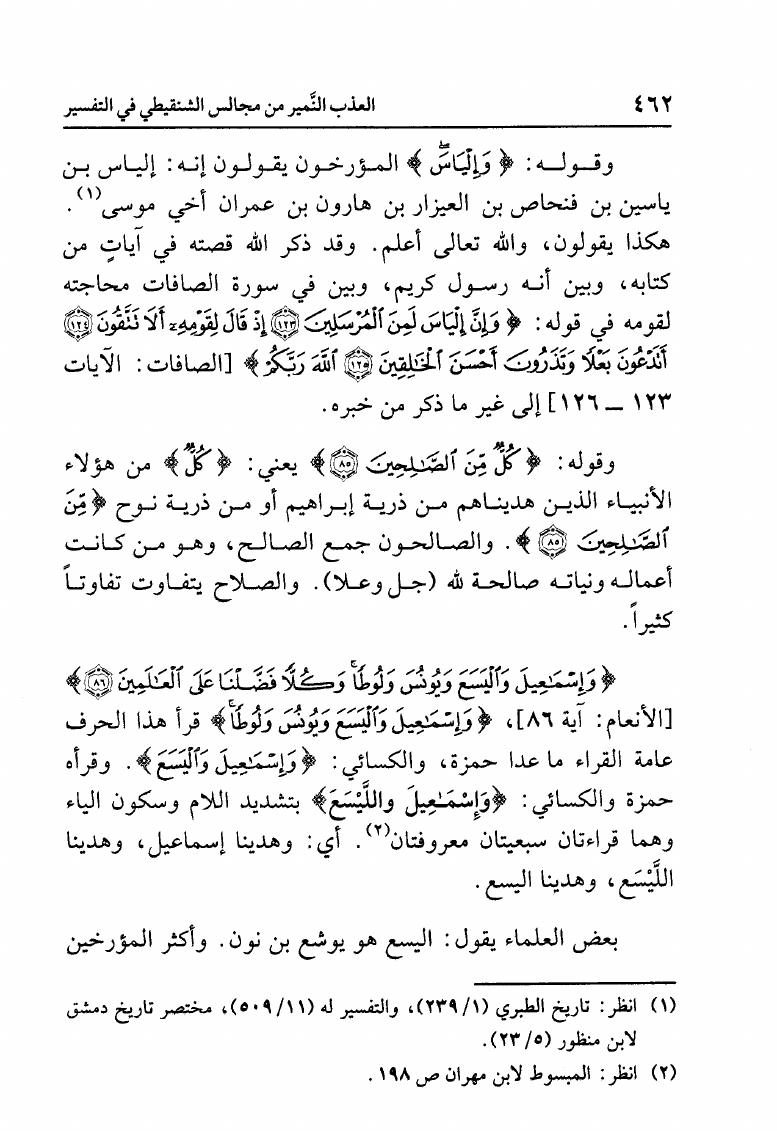 ٤٦٢ العذب النَّمير من مجالس الشنقيطي في التفسير
وقـولـه: ﴿ وَإِلْيَاسَۖ ﴾ المـؤرخـون يقـولـون إنـه: إلياس بـن
ياسين بن فنحاص بن العيزار بن هارون بن عمران أخي موسى(١).
هكذا يقولون، والله تعالى أعلم. وقد ذكر الله قصته في آياتٍ من
كتابه، وبين أنـه رسـول كريم، وبين في سورة الصافات محاجته
لقومه في قوله: ﴿ وَإِنَّ إِلْيَاسَ لَمِنَ ٱلْمُرْسَلِينَ ١٢٣ إِذْ قَالَ لِقَوْمِهِۦٓ أَلَا تَتَّقُونَ ١٢٤
أَتَدْعُونَ بَعْلًا وَتَذَرُونَ أَحْسَنَ ٱلْخَٰلِقِينَ ١٢٥ ٱللَّهَ رَبَّكُمْ ﴾ [الصافات: الآيات
١٢٣ ــ ١٢٦] إلى غير ما ذكر من خبره.
وقوله: ﴿ كُلٌّ مِّنَ ٱلصَّٰلِحِينَ ٨٥ ﴾ يعني: ﴿ كُلٌّ ﴾ من هؤلاء
الأنبيـاء الذيـن هدينـاهم مـن ذريـة إبـراهيم أو مـن ذريـة نـوح ﴿ مِّنَ
ٱلصَّٰلِحِينَ ٨٥ ﴾. والصـالحـون جمـع الصـالـح، وهـو مـن كـانـت
أعمـالـه ونياتـه صالحـة لله (جـل وعـلا). والصـلاح يتفـاوت تفاوتـاً
كثيراً.
﴿ وَإِسْمَٰعِيلَ وَٱلْيَسَعَ وَيُونُسَ وَلُوطًاۚ وَكُلًّا فَضَّلْنَا عَلَى ٱلْعَٰلَمِينَ ٨٦ ﴾
[الأنعام: آية ٨٦]، ﴿ وَإِسْمَٰعِيلَ وَٱلْيَسَعَ وَيُونُسَ وَلُوطًاۚ ﴾ قرأ هذا الحرف
عامة القراء ما عدا حمزة، والكسائي: ﴿ وَإِسْمَٰعِيلَ وَٱلْيَسَعَ ﴾. وقرأه
حمزة والكسائي: ﴿وَإِسْمَٰعِيلَ واللَّيْسَعَ﴾ بتشديد اللام وسكون الياء
وهما قراءتان سبعيتان معروفتان(٢). أي: وهدينا إسماعيل، وهدينا
اللَّيْسَع، وهدينا اليسع.
بعض العلماء يقول: اليسع هو يوشع بن نون. وأكثر المؤرخين
(١) انظر: تاريخ الطبري (٢٣٩/١)، والتفسير له (٥٠٩/١١)، مختصر تاريخ دمشق
لابن منظور (٢٣/٥).
(٢) انظر: المبسوط لابن مهران ص ١٩٨.